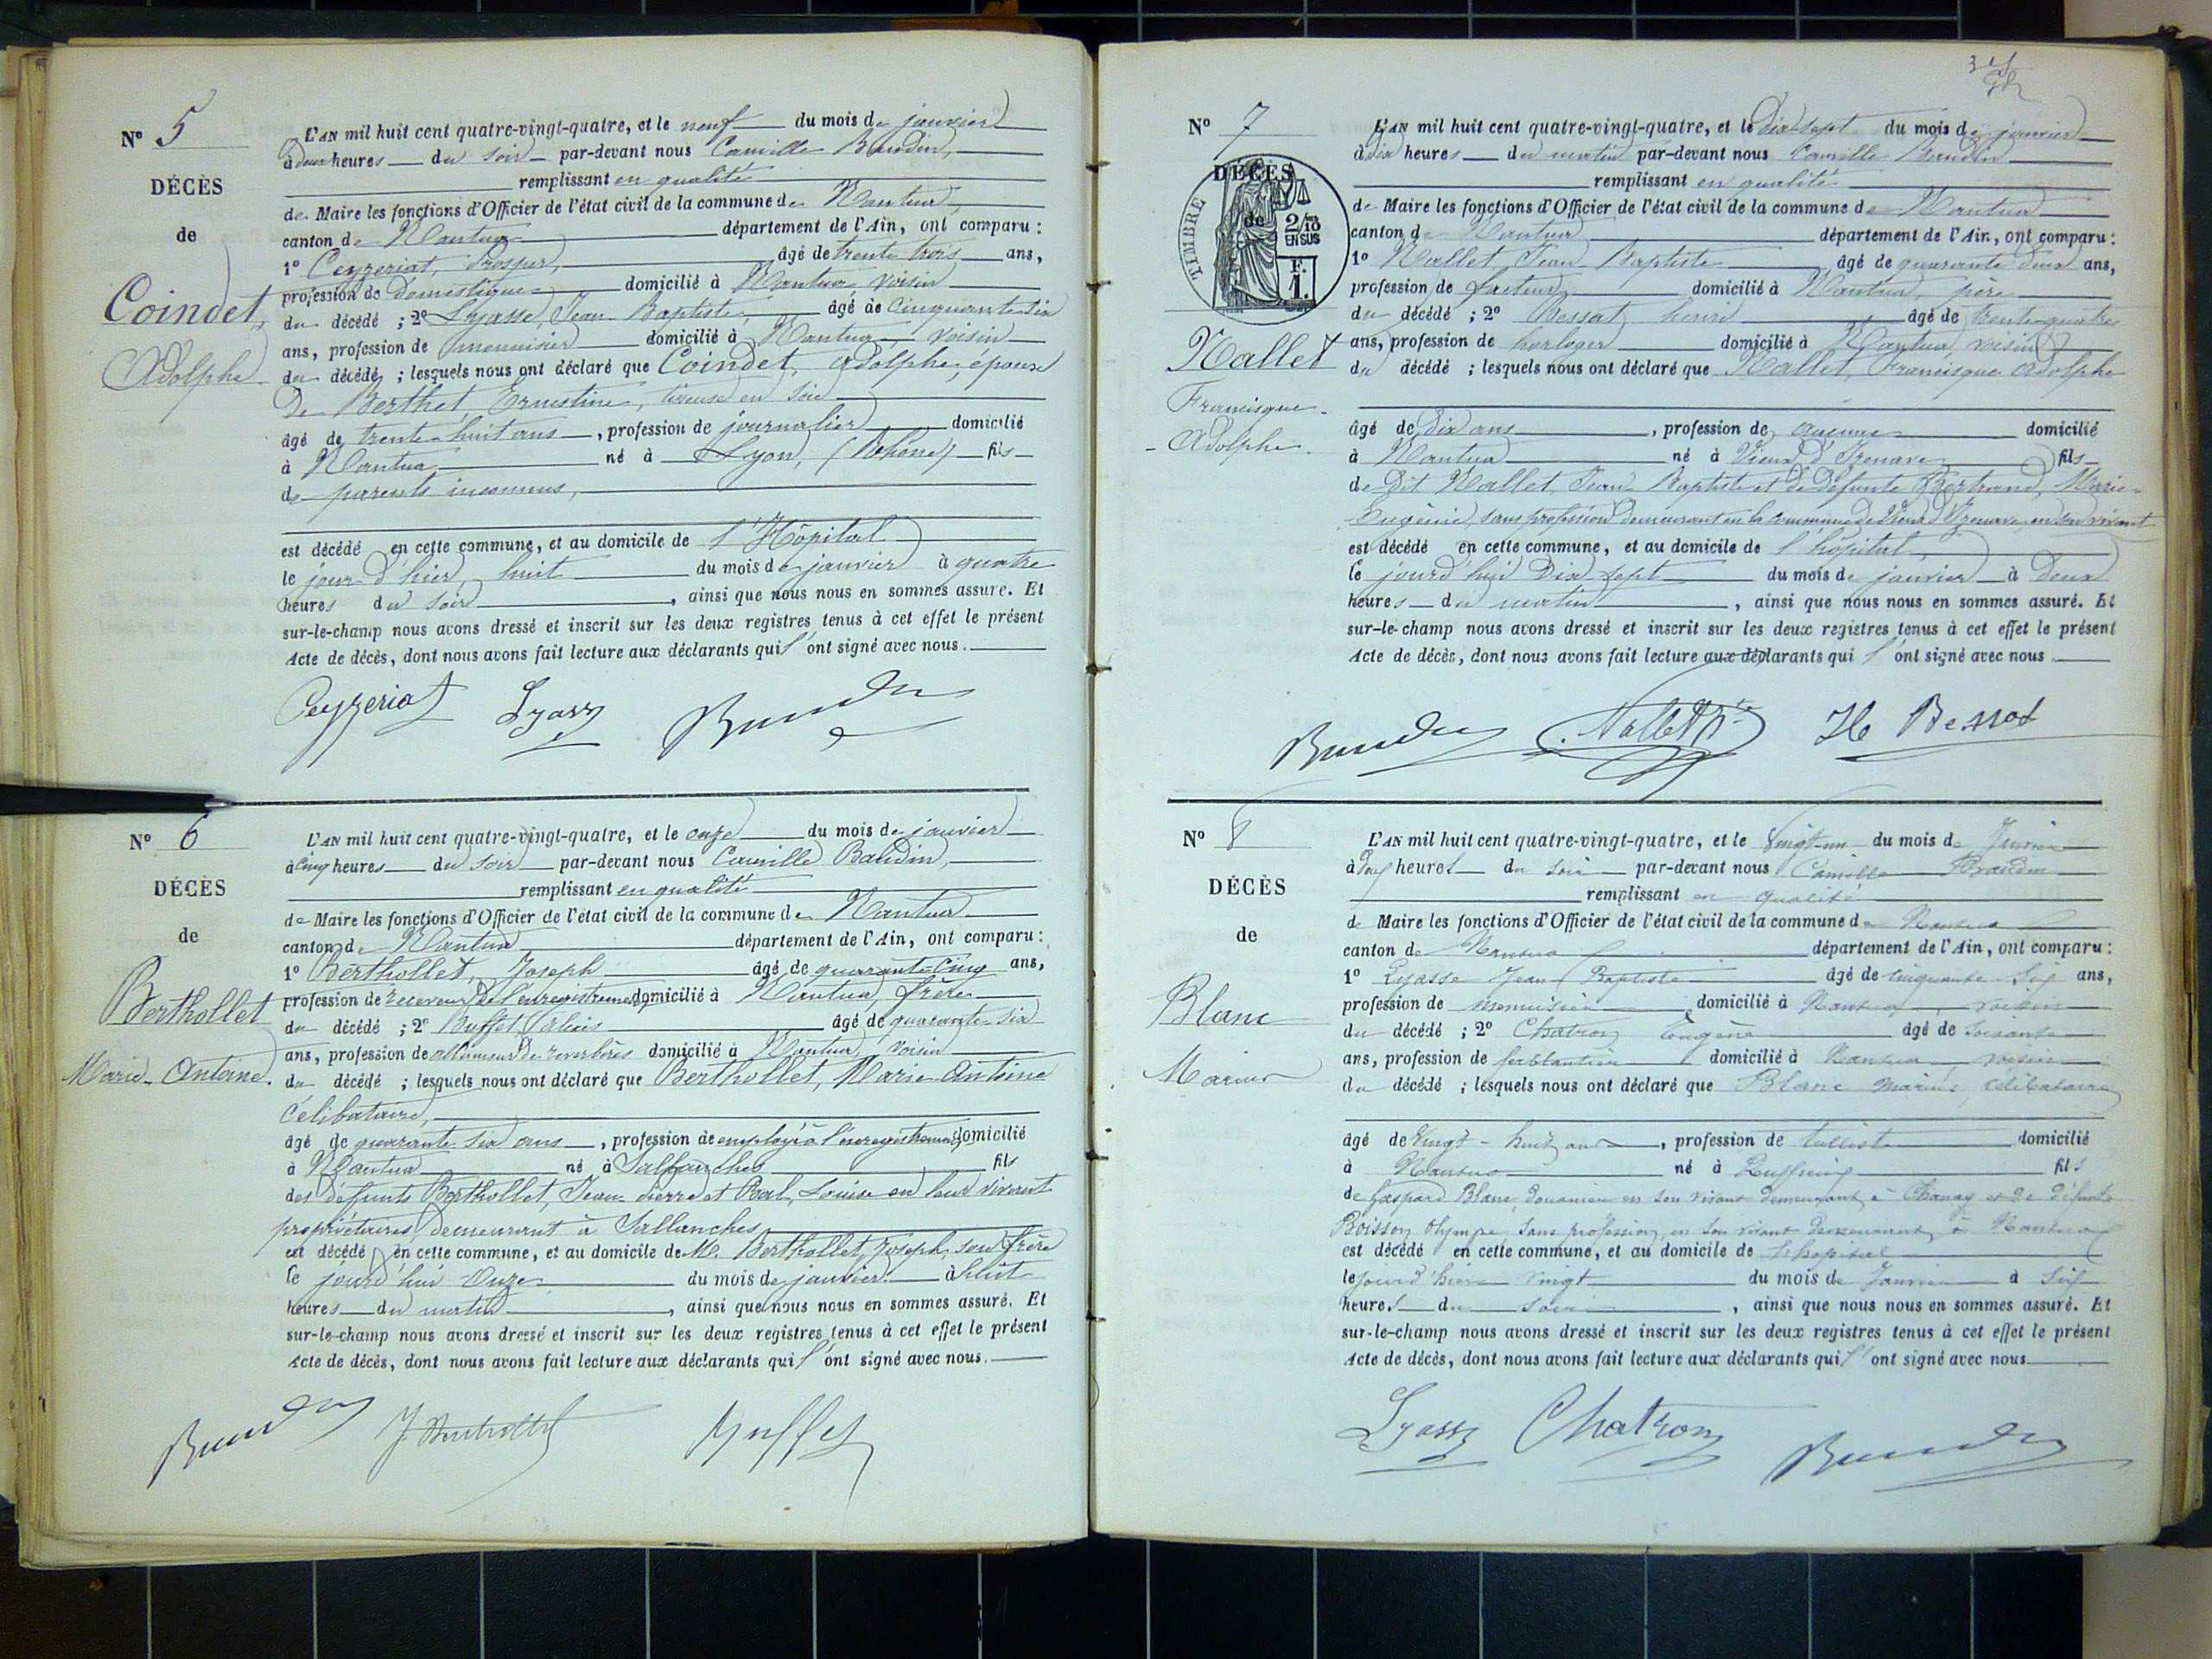 N° 5
DÉCÈS
de
Coindet,
Adolphe
L'AN mil huit cent quatre-vingt-quatre, et le neuf du mois de janvier
à deux heures du soir par-devant nous Camille Baudin,
remplissant en qualité
de Maire les fonctions d'Officier de l'état civil de la commune de Nantua
canton de Nantua département de l'Ain, ont comparu :
1° Ceyzeriat, Prosper, âgé de trente trois ans,
profession de Domestique domicilié à Nantua voisin
du décédé ; 2° Lyasse, Jean Baptiste, âgé de cinquante six
ans, profession de menuisier domicilié à Nantua, voisin
du décédé ; lesquels nous ont déclaré que Coindet, Adolphe, époux
de Berthet, Ernestine, tisseuse en soie
âgé de trente-huit ans, profession de journalier domicilié
à Nantua né à Lyon, (Rhône) fils
de parents inconnus,
est décédé en cette commune, et au domicile de l'Hôpital
le jour d'hier, huit du mois de janvier à quatre
heures du soir, ainsi que nous nous en sommes assuré. Et
sur-le-champ nous avons dressé et inscrit sur les deux registres tenus à cet effet le présent
Acte de décès, dont nous avons fait lecture aux déclarants qui l'ont signé avec nous.
Ceyzeriat Lyasse Baudin
N° 6
DÉCÈS
de
Berthollet
Marie-Antoine.
L'AN mil huit cent quatre-vingt-quatre, et le onze du mois de janvier
à cinq heures du soir par-devant nous Camille Baudin,
remplissant en qualité
de Maire les fonctions d'Officier de l'état civil de la commune de Nantua
canton de Nantua département de l'Ain, ont comparu :
1° Berthollet, Joseph âgé de quarante-cinq ans,
profession de receveur de l'enregistrement domicilié à Nantua, frère
du décédé ; 2° Buffet Alexis âgé de quarante-six
ans, profession de allumeur de reverbères domicilié à Nantua, voisin
du décédé ; lesquels nous ont déclaré que Berthollet, Marie-Antoine
célibataire,
âgé de quarante-six ans, profession de employé à l'enregistrement domicilié
à Nantua né à Sallanches fils
des défunts Berthollet, Jean-Pierre et Bal, Louise en leur vivant
propriétaires demeurant à Sallanches
est décédé en cette commune, et au domicile de M. Berthollet, Joseph, son frère
le jourd'hui onze du mois de janvier à huit
heures du matin, ainsi que nous nous en sommes assuré. Et
sur-le-champ nous avons dressé et inscrit sur les deux registres tenus à cet effet le présent
Acte de décès, dont nous avons fait lecture aux déclarants qui l'ont signé avec nous.
Baudin J. Berthollet Buffet
N° 7
DÉCÈS
de
TIMBRE
2/10
EN SUS
F.
1.
Nallet
Francisque-
Adolphe.
L'AN mil huit cent quatre-vingt-quatre, et le dix-sept du mois de janvier
à dix heures du matin par-devant nous Camille Baudin
remplissant en qualité
de Maire les fonctions d'Officier de l'état civil de la commune de Nantua
canton de Nantua département de l'Ain, ont comparu :
1° Nallet, Jean-Baptiste âgé de quarante deux ans,
profession de facteur domicilié à Nantua, père
du décédé ; 2° Bessat, henri âgé de trente-quatre
ans, profession de horloger domicilié à Nantua, voisin
du décédé ; lesquels nous ont déclaré que Nallet, Francisque Adolphe
âgé de dix ans, profession de aucune domicilié
à Nantua né à Vieux d'Izenave fils
de dit Nallet, Jean Baptiste et de défunte Bertrand, Marie-
Eugénie, sans profession demeurant en la commune de Vieux d'Izenave en son vivant
est décédé en cette commune, et au domicile de l'hôpital
le jourd'hui Dix sept du mois de janvier à Deux
heures du matin, ainsi que nous nous en sommes assuré. Et
sur-le-champ nous avons dressé et inscrit sur les deux registres tenus à cet effet le présent
Acte de décès, dont nous avons fait lecture aux déclarants qui l'ont signé avec nous
Baudin Nallet H Bessat
N° 8
DÉCÈS
de
Blanc
Marius
L'AN mil huit cent quatre-vingt-quatre, et le vingt-un du mois de Janvier
à deux heures du soir par-devant nous Camille Baudin
remplissant en qualité
de Maire les fonctions d'Officier de l'état civil de la commune de Nantua
canton de Nantua département de l'Ain, ont comparu :
1° Lyasse Jean Baptiste âgé de cinquante-six ans,
profession de menuisier domicilié à Nantua, voisin
du décédé ; 2° Chatron Eugène âgé de soixante
ans, profession de ferblantier domicilié à Nantua, voisin
du décédé ; lesquels nous ont déclaré que Blanc Marius, célibataire
âgé de vingt-huit ans, profession de tulliste domicilié
à Nantua né à fils
de Gaspard Blanc, douanier en son vivant demeurant à Chanay et de défunte
Boisson Olympe sans profession, en son vivant demeurant à Nantua
est décédé en cette commune, et au domicile de l'hopital
le jour d'hier vingt du mois de Janvier à six
heures du soir, ainsi que nous nous en sommes assuré. Et
sur-le-champ nous avons dressé et inscrit sur les deux registres tenus à cet effet le présent
Acte de décès, dont nous avons fait lecture aux déclarants qui l'ont signé avec nous
Lyasse Chatron Baudin